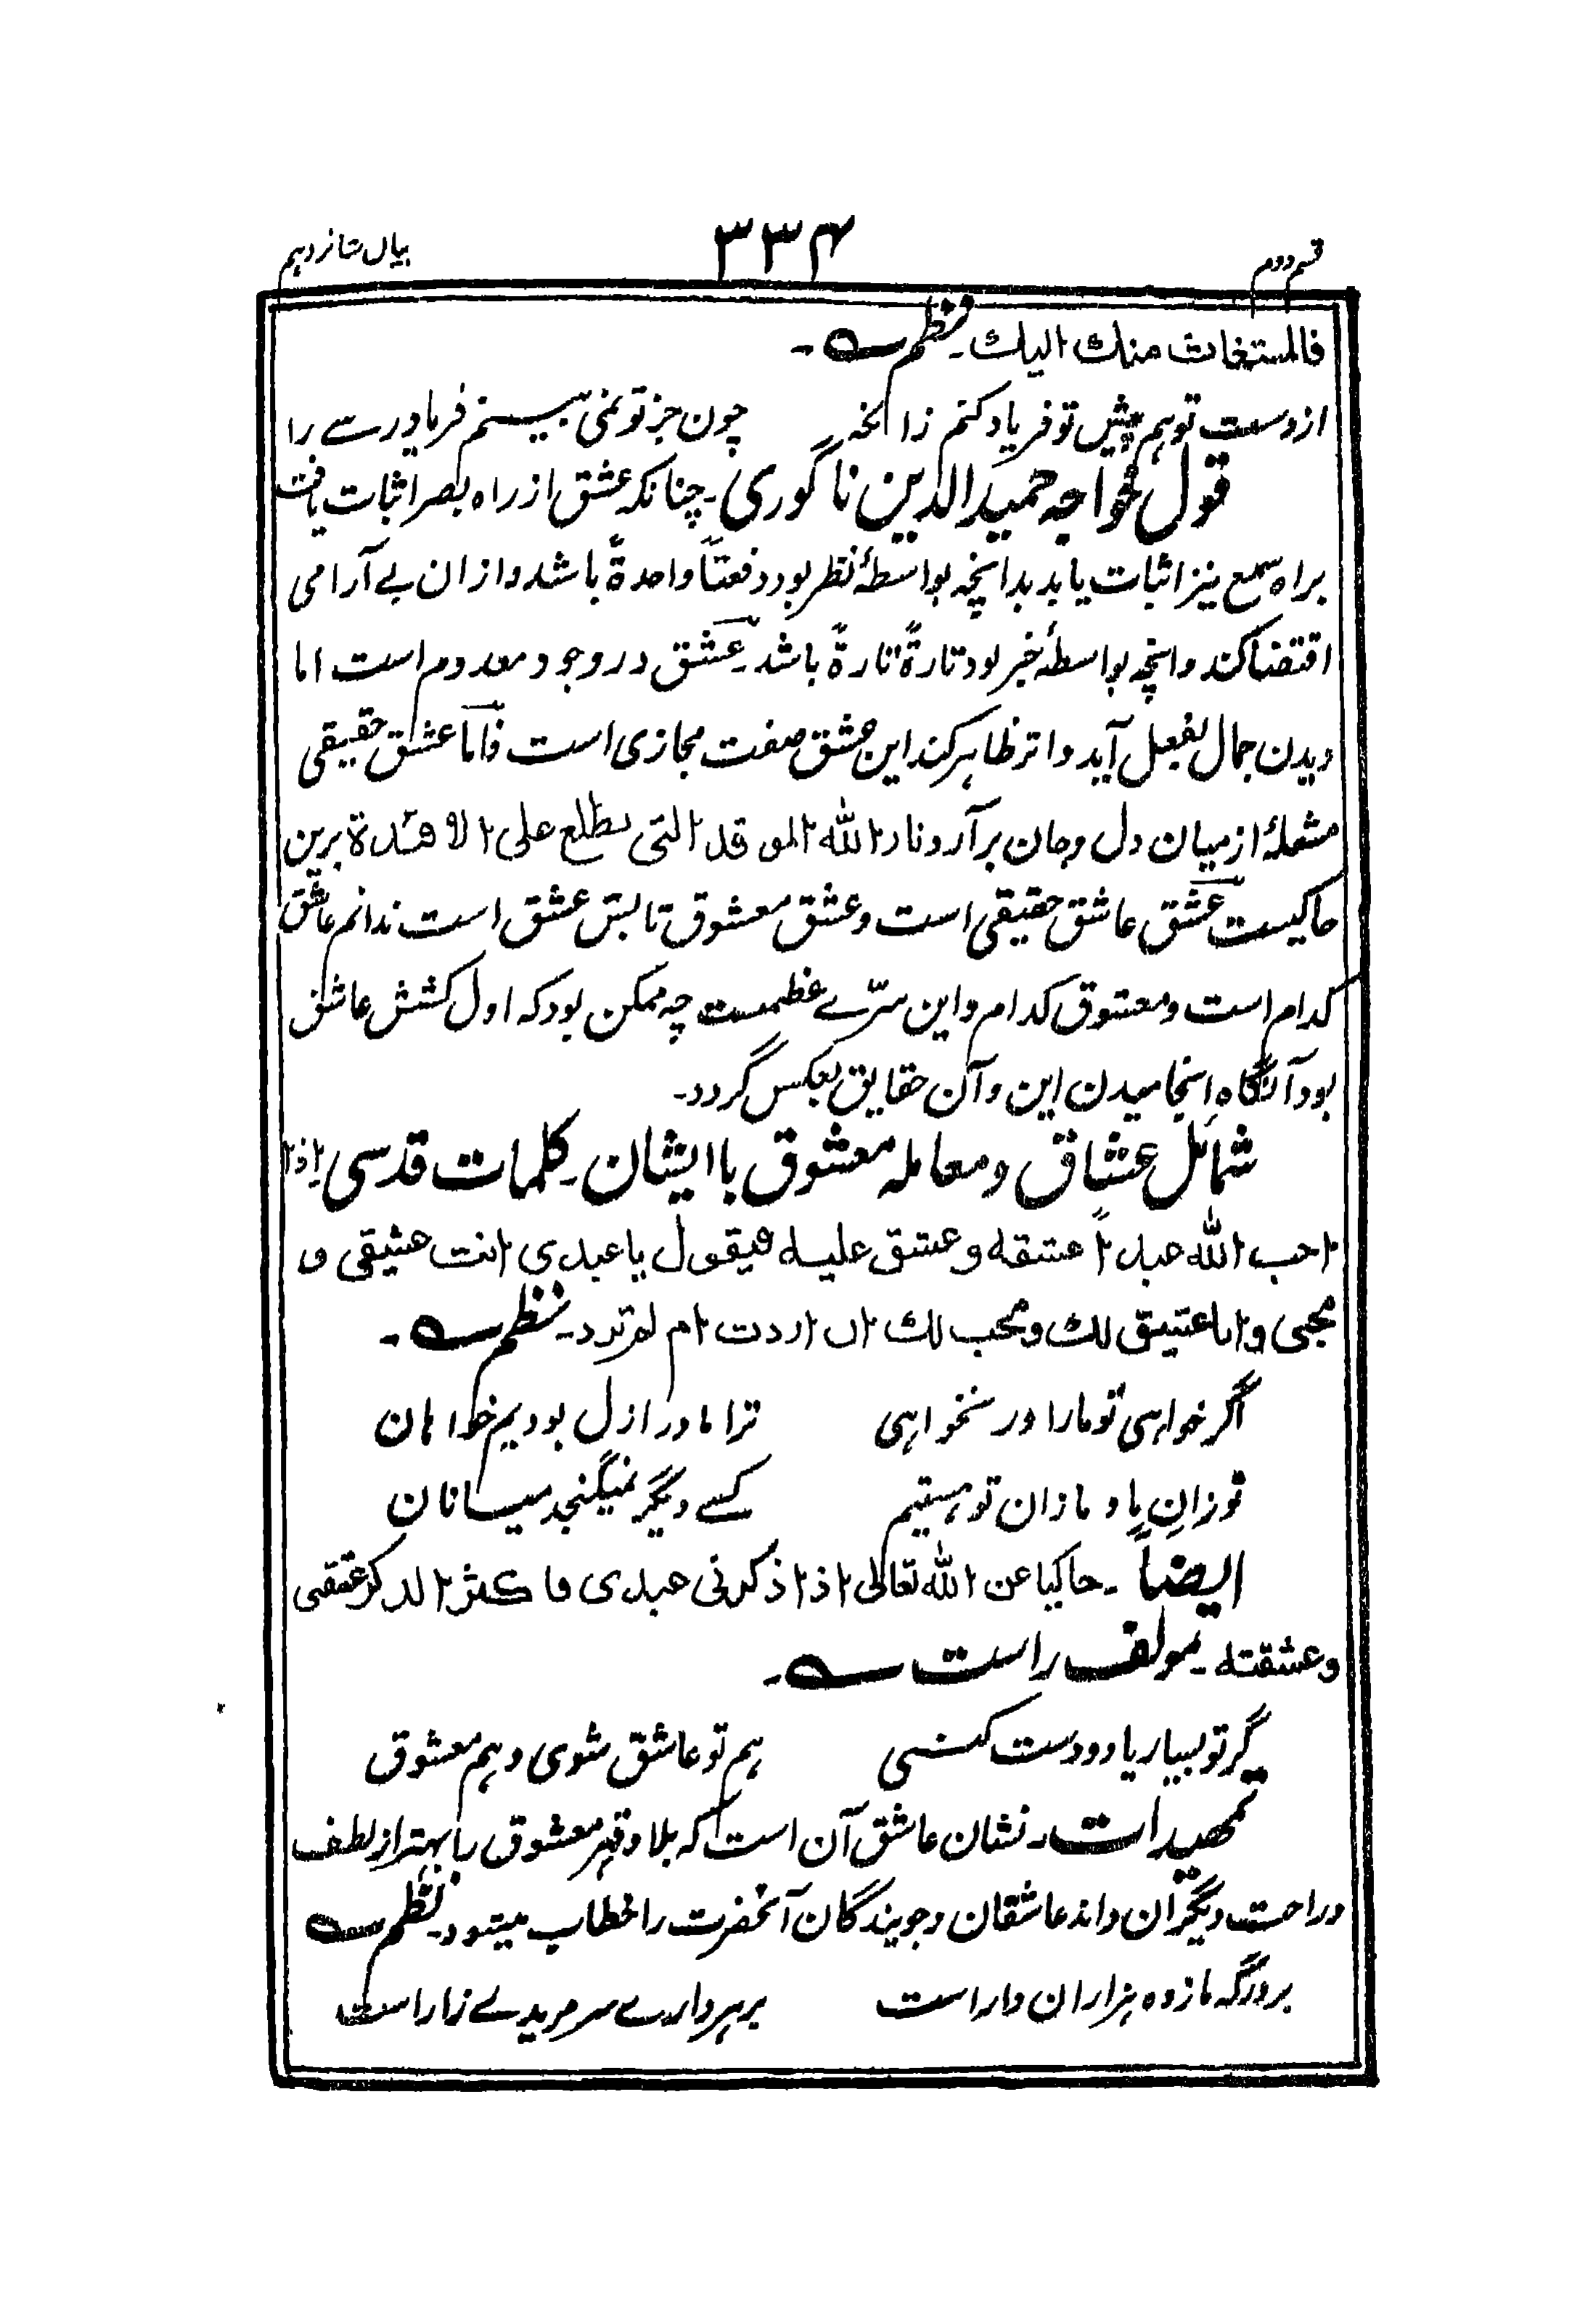 قسم دوم
۳۳۴
بیان شانزدهم
فالمستغاث منك الیك۔ نظم ؎۔
از دست تو هم پیش تو فریاد کنم زانکه چون جز تو نمی بینم فریادرسے را
قول خواجه حمیدالدین ناگوری۔ چنانکه عشق از راه بصر اثبات یافت
براه سمع نیز اثبات یابد بدانچه بواسطهٔ نظر بود دفعتاً واحدةً باشد و ازان بے آرامی
اقتضا کند و انچه بواسطهٔ خبر بود تارةً تارةً باشد۔ عشق در وجود معدوم است اما
دیدن جمال بفعل آید و اثر ظاهر کند این عشق صفت مجازی است فاما عشق حقیقی
مشعلهٔ از میان دل و جان برآرد نار الله الموقدة التی تطلع علی الافئدة برین
حاکیست عشق عاشق حقیقی است و عشق معشوق تابش عشق است ندانم عاشق
کدام است و معشوق کدام و این سرّے عظیمست چه ممکن بود که اول کشش عاشق
بود آنگاه انجامیدن این و آن حقایق بعکس گردد۔
شمائل عشاق و معامله معشوق با ایشان۔ کلمات قدسی اذا
احب الله عبداً عشقه و عشق علیه فیقول یا عبدی انت عشیقی و
محبی و انا عشیق لك و محب لك ان اردت ام لم ترد۔ نظم ؎۔
اگر خواهی تو مارا ور نخواهی ترا ما در ازل بودیم خواهان
تو زانِ ما و ما زان تو هستیم کسے دیگر نمیگنجد میسانان
ایضاً۔ حاکیا عن الله تعالی اذا ذکرنی عبدی فاکثر الذکر عشقنی
و عشقته۔ مولف راست ؎۔
گر تو بسیار یاد دوست کنی هم تو عاشق شوی و هم معشوق
تمهیدات۔ نشان عاشق آن است که بلا و قهر معشوق را بهتر از لطف
و راحت دیگران داند عاشقان و جویندگان آنحضرت را خطاب میشود۔ نظم ؎
بر درگه ما زده هزاران دار است بر هر دارے سر مریدے زار است